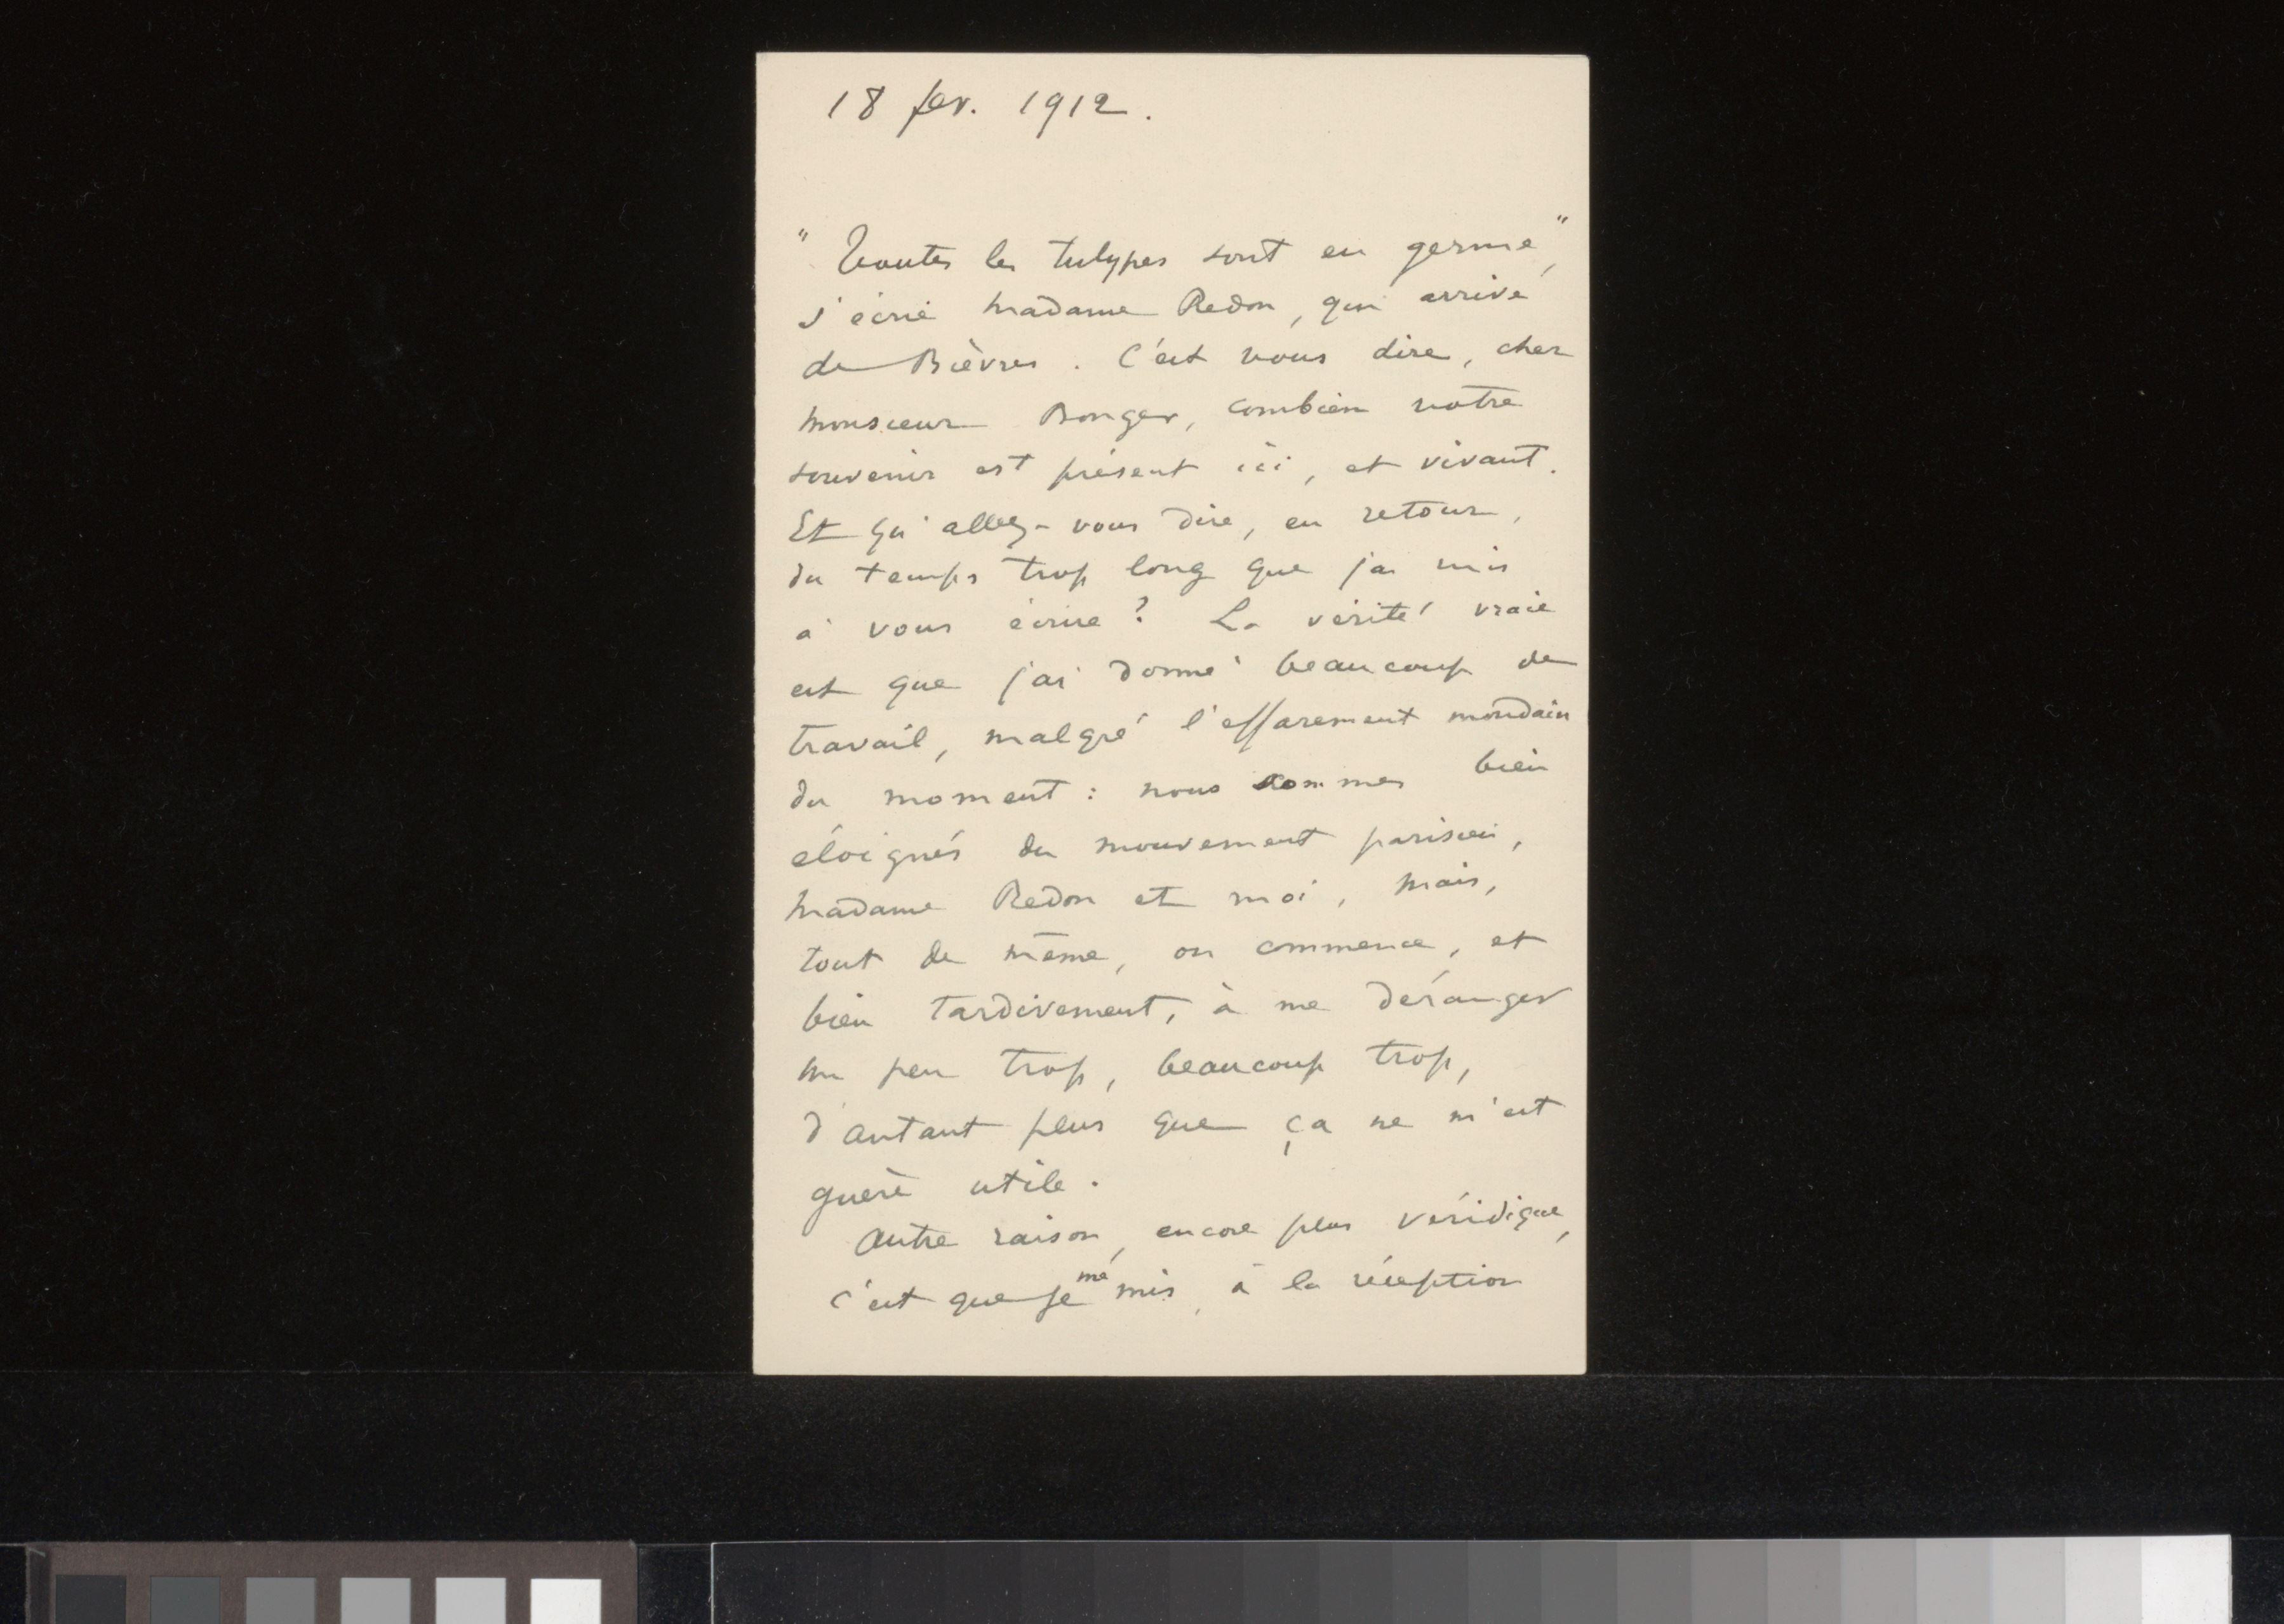 18 fev. 1912.
" Toutes les tulypes sont en germe",
s'écrie madame Redon, qui arrive
de Bièvres. C'est vous dire, cher
monsieur Bonger, combien votre
souvenir est présent ici, et vivant.
Et qu'allez-vous dire, en retour,
du temps trop long que j'ai mis
à vous écrire? La vérité vraie
est que j'ai donné beaucoup de
travail, malgré l'effarement mondain
du moment: nous sommes bien
éloignés du mouvement parisien,
madame Redon et moi, mais,
tout de même, on commence, et
bien tardivement, à me déranger
un peu trop, beaucoup trop,
d'autant plus que ça ne m'est
guère utile.
Autre raison, encore plus véridique,
c'est que je me mis, à la réception